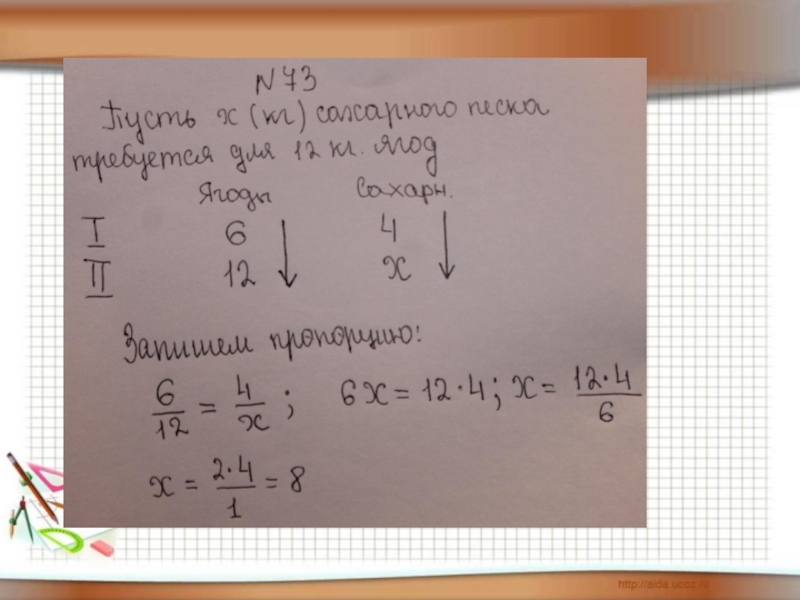 N 73
Пусть x (кг) сахарного песка
требуется для 12 кг. ягод
Ягоды Сахарн.
I 6 4
II 12 x
Запишем пропорцию:
6/12 = 4/x ; 6x = 12·4; x = 12·4/6
x = 2·4/1 = 8
http://aida.ucoz.ru